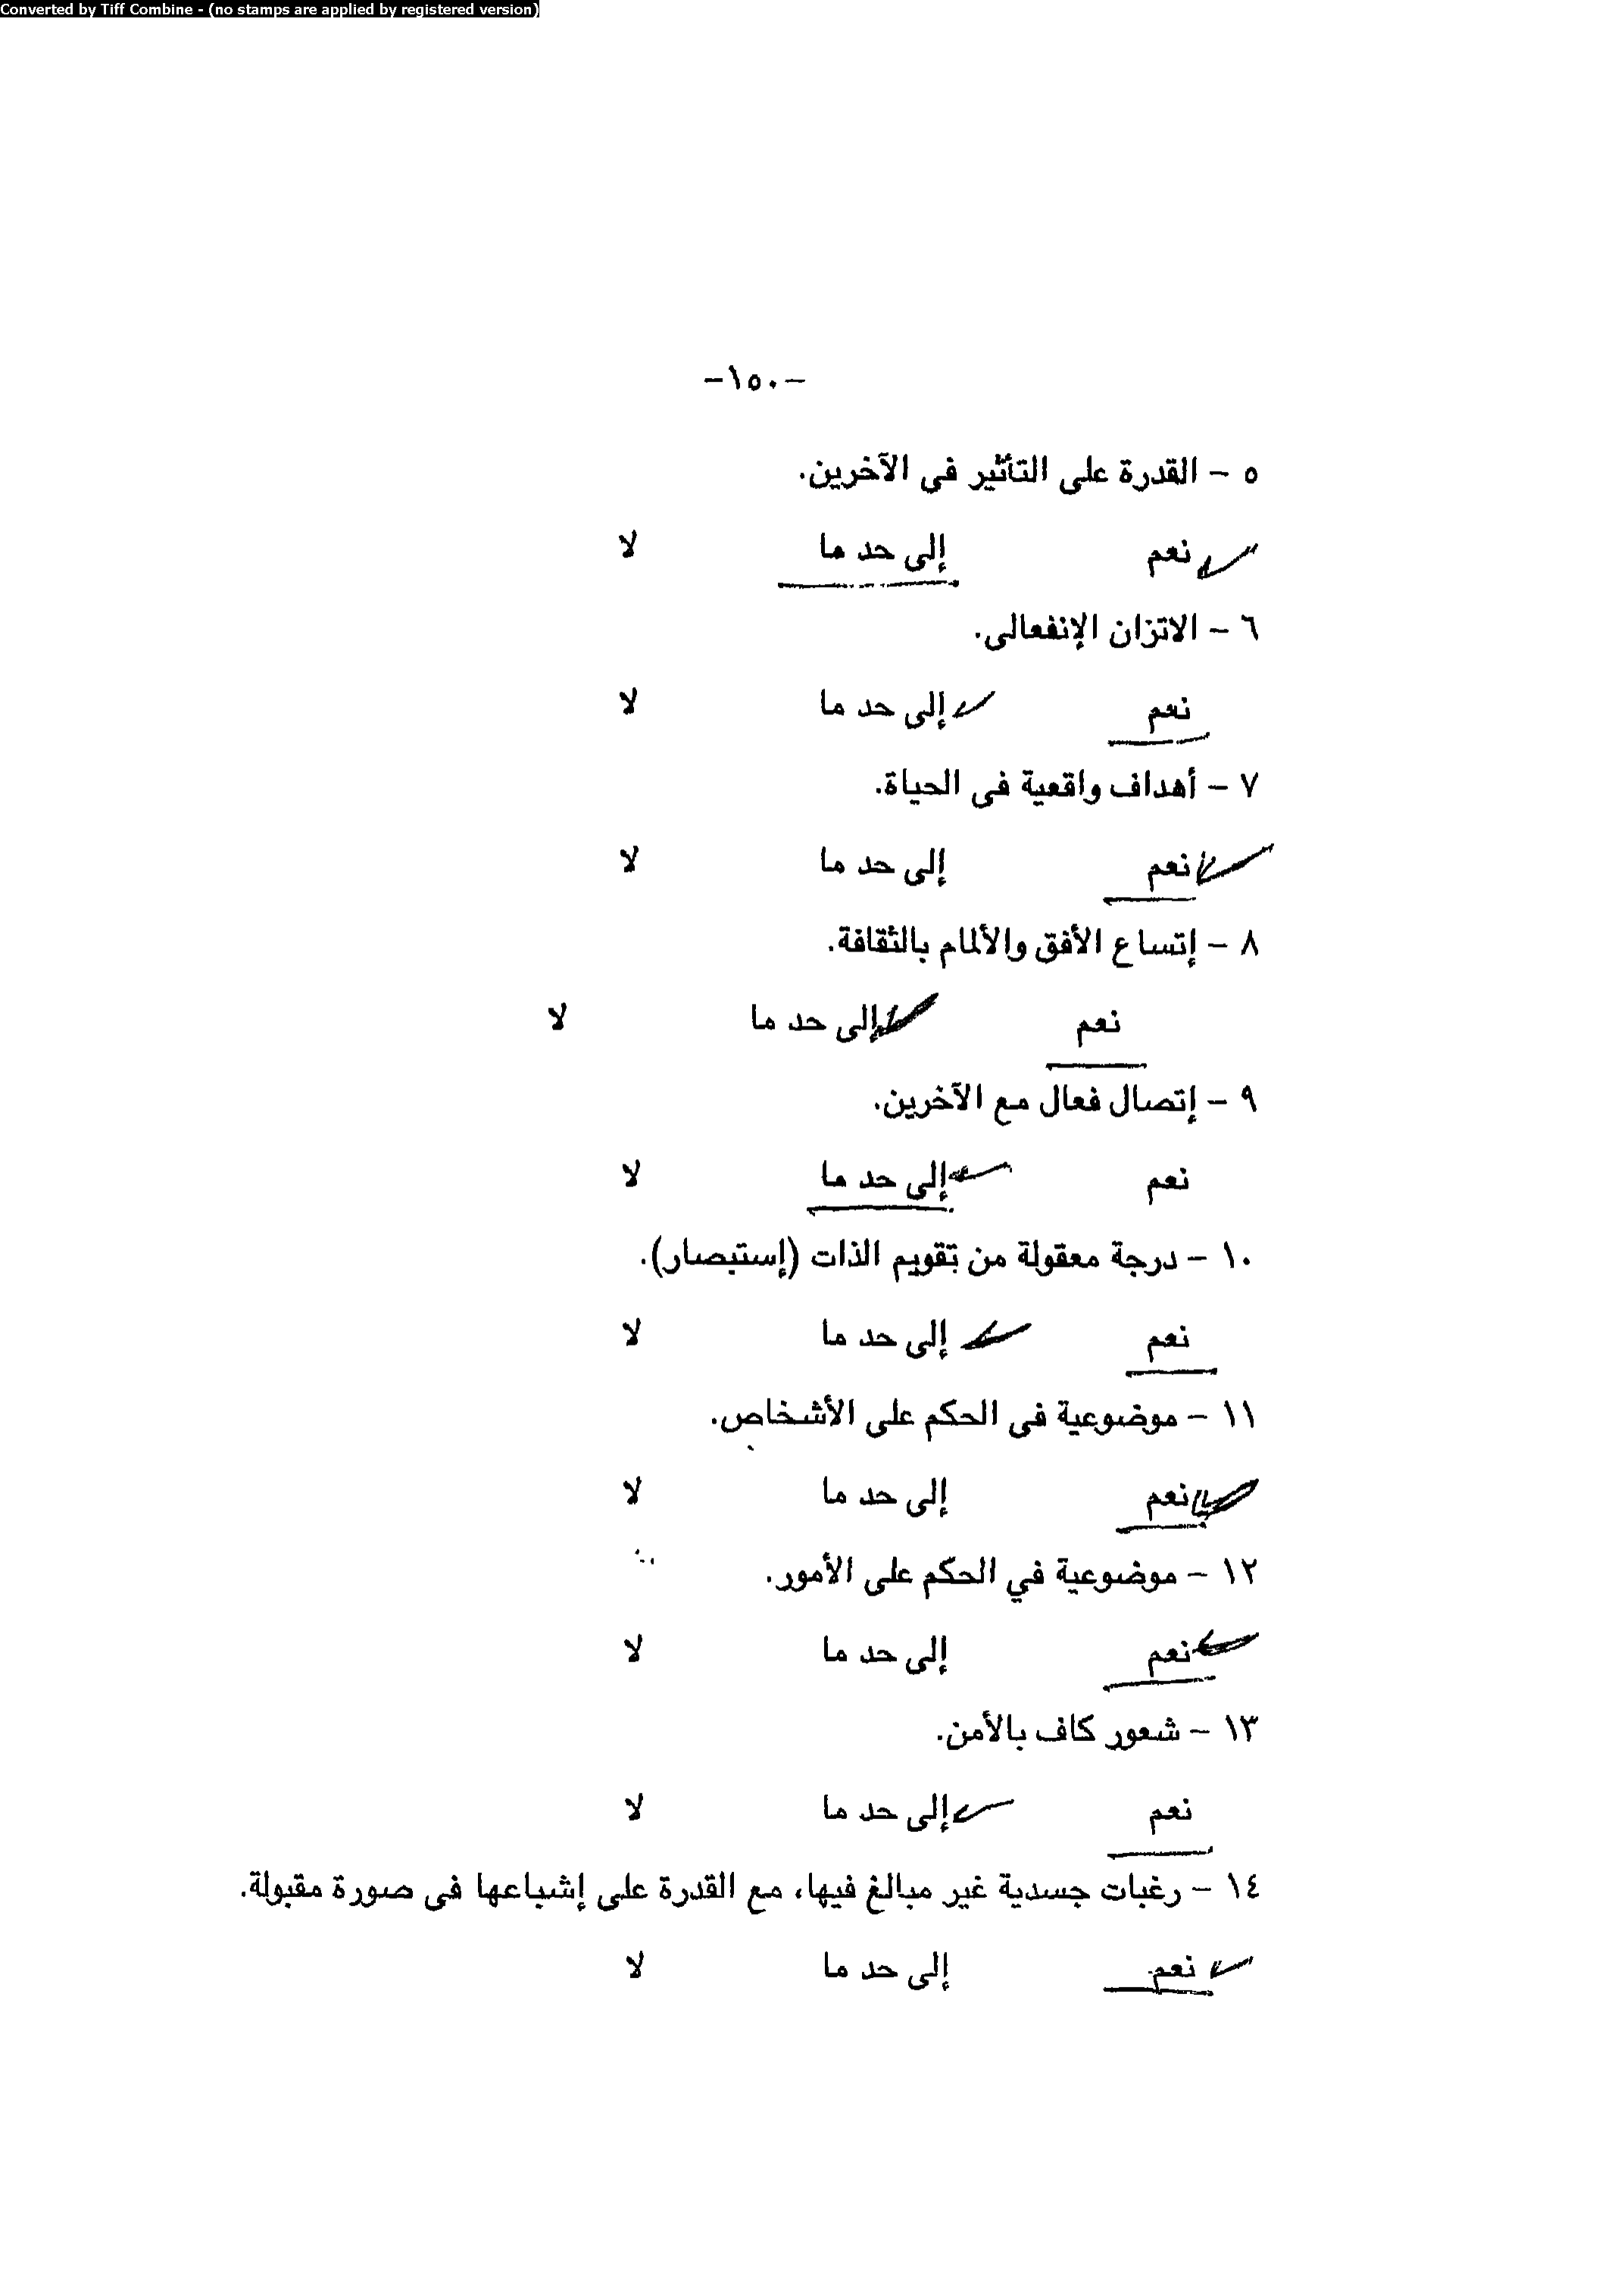 Converted by Tiff Combine - (no stamps are applied by registered version)
-١٥٠-
٥ - القدرة على التأثير فى الآخرين.
نعم إلى حد ما لا
٦ - الاتزان الإنفعالى.
نعم إلى حد ما لا
٧ - أهداف واقعية فى الحياة.
نعم إلى حد ما لا
٨ - إتساع الأفق والألمام بالثقافة.
نعم إلى حد ما لا
٩ - إتصال فعال مع الآخرين.
نعم إلى حد ما لا
١٠ - درجة معقولة من تقويم الذات (إستبصار).
نعم إلى حد ما لا
١١ - موضوعية فى الحكم على الأشخاص.
نعم إلى حد ما لا
١٢ - موضوعية في الحكم على الأمور.
نعم إلى حد ما لا
١٣ - شعور كاف بالأمن.
نعم إلى حد ما لا
١٤ - رغبات جسدية غير مبالغ فيها، مع القدرة على إشباعها فى صورة مقبولة.
نعم إلى حد ما لا